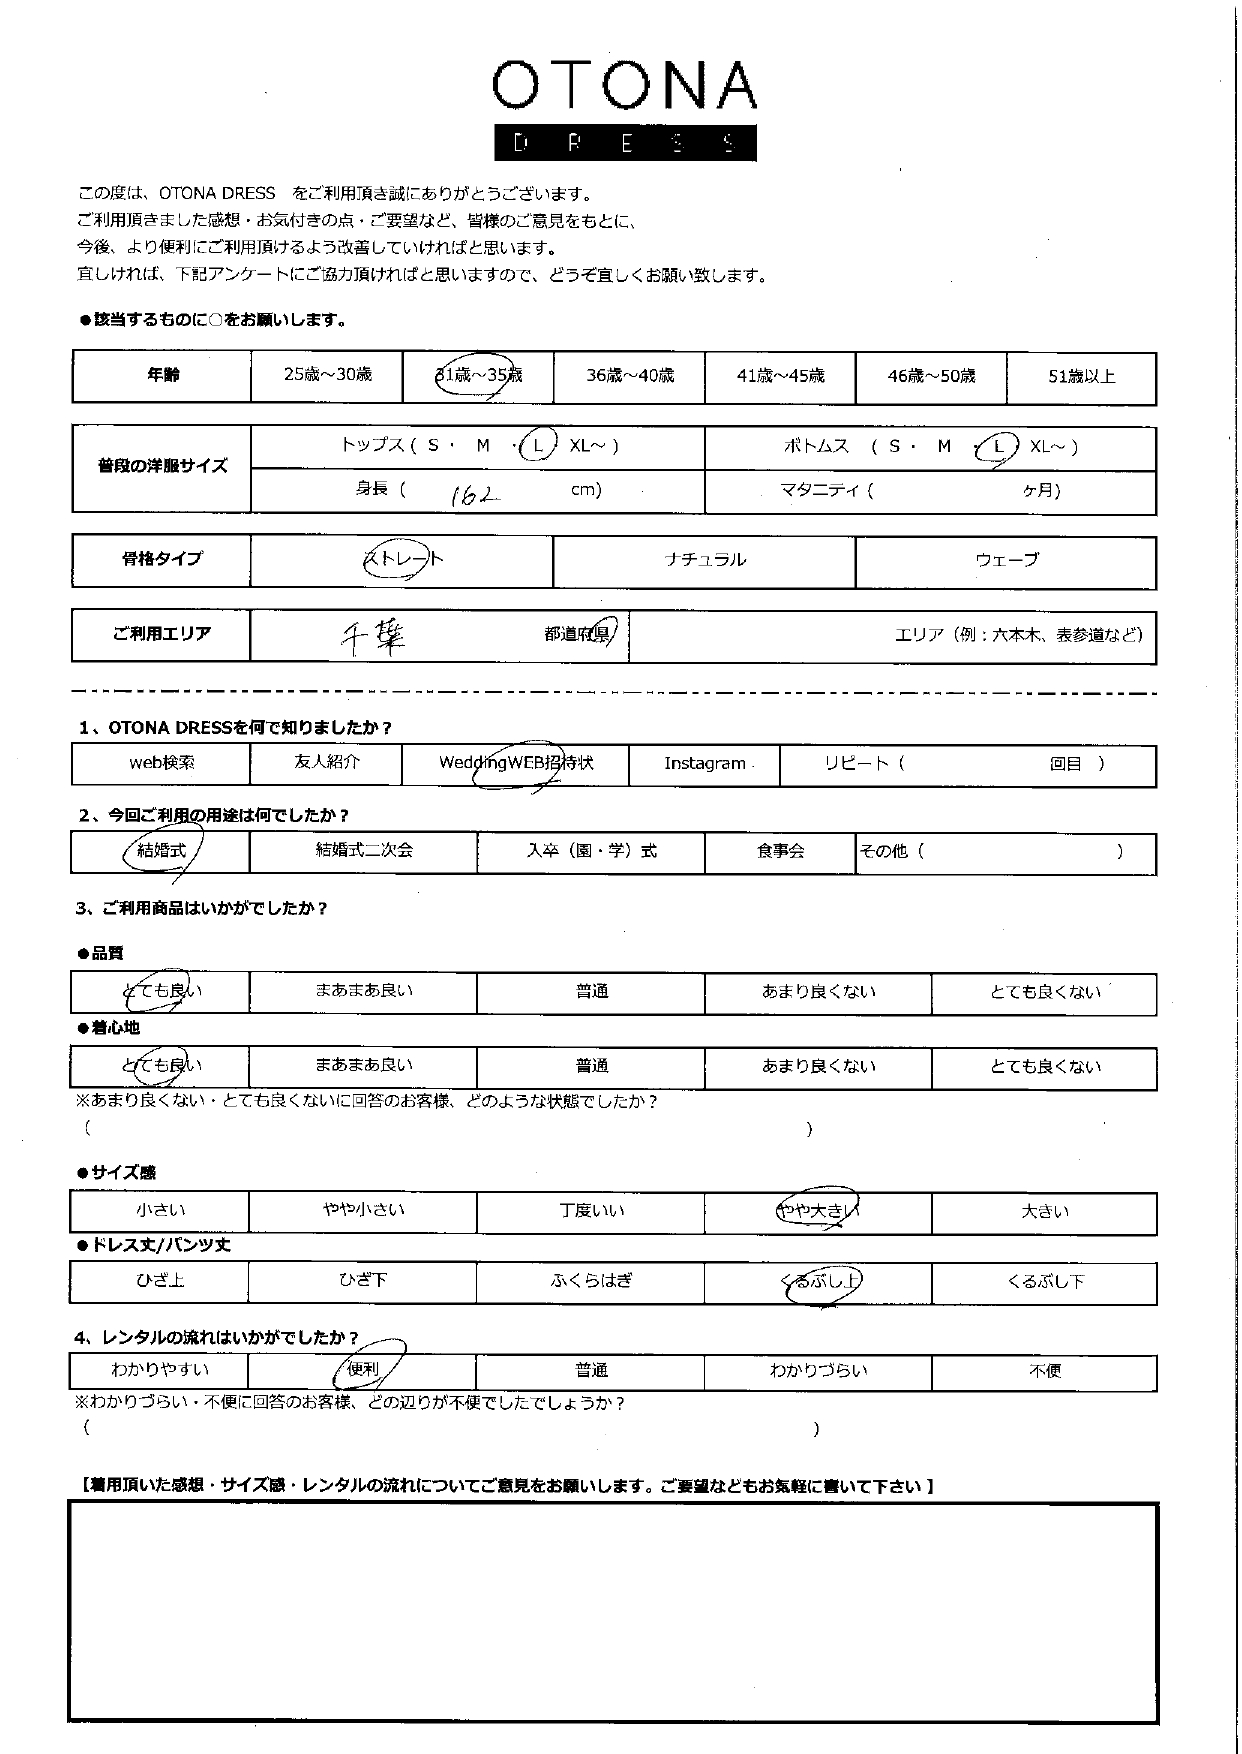 OTONA
DRESS
この度は、OTONA DRESS　をご利用頂き誠にありがとうございます。
ご利用頂きました感想・お気付きの点・ご要望など、皆様のご意見をもとに、
今後、より便利にご利用頂けるよう改善していければと思います。
宜しければ、下記アンケートにご協力頂ければと思いますので、どうぞ宜しくお願い致します。
●該当するものに○をお願いします。
年齢 25歳～30歳 31歳～35歳 36歳～40歳 41歳～45歳 46歳～50歳 51歳以上
普段の洋服サイズ トップス ( S ・ M ・ L XL～ ) ボトムス ( S ・ M ・ L XL～ )
身長 ( 162 cm) マタニティ ( ヶ月)
骨格タイプ ストレート ナチュラル ウェーブ
ご利用エリア 千葉 都道府県 エリア（例：六本木、表参道など）
1、OTONA DRESSを何で知りましたか？
web検索 友人紹介 WeddingWEB招待状 Instagram リピート（ 回目 ）
2、今回ご利用の用途は何でしたか？
結婚式 結婚式二次会 入卒（園・学）式 食事会 その他（ ）
3、ご利用商品はいかがでしたか？
●品質
とても良い まあまあ良い 普通 あまり良くない とても良くない
●着心地
とても良い まあまあ良い 普通 あまり良くない とても良くない
※あまり良くない・とても良くないに回答のお客様、どのような状態でしたか？
（ ）
●サイズ感
小さい やや小さい 丁度いい やや大きい 大きい
●ドレス丈/パンツ丈
ひざ上 ひざ下 ふくらはぎ くるぶし上 くるぶし下
4、レンタルの流れはいかがでしたか？
わかりやすい 便利 普通 わかりづらい 不便
※わかりづらい・不便に回答のお客様、どの辺りが不便でしたでしょうか？
（ ）
【着用頂いた感想・サイズ感・レンタルの流れについてご意見をお願いします。ご要望などもお気軽に書いて下さい 】